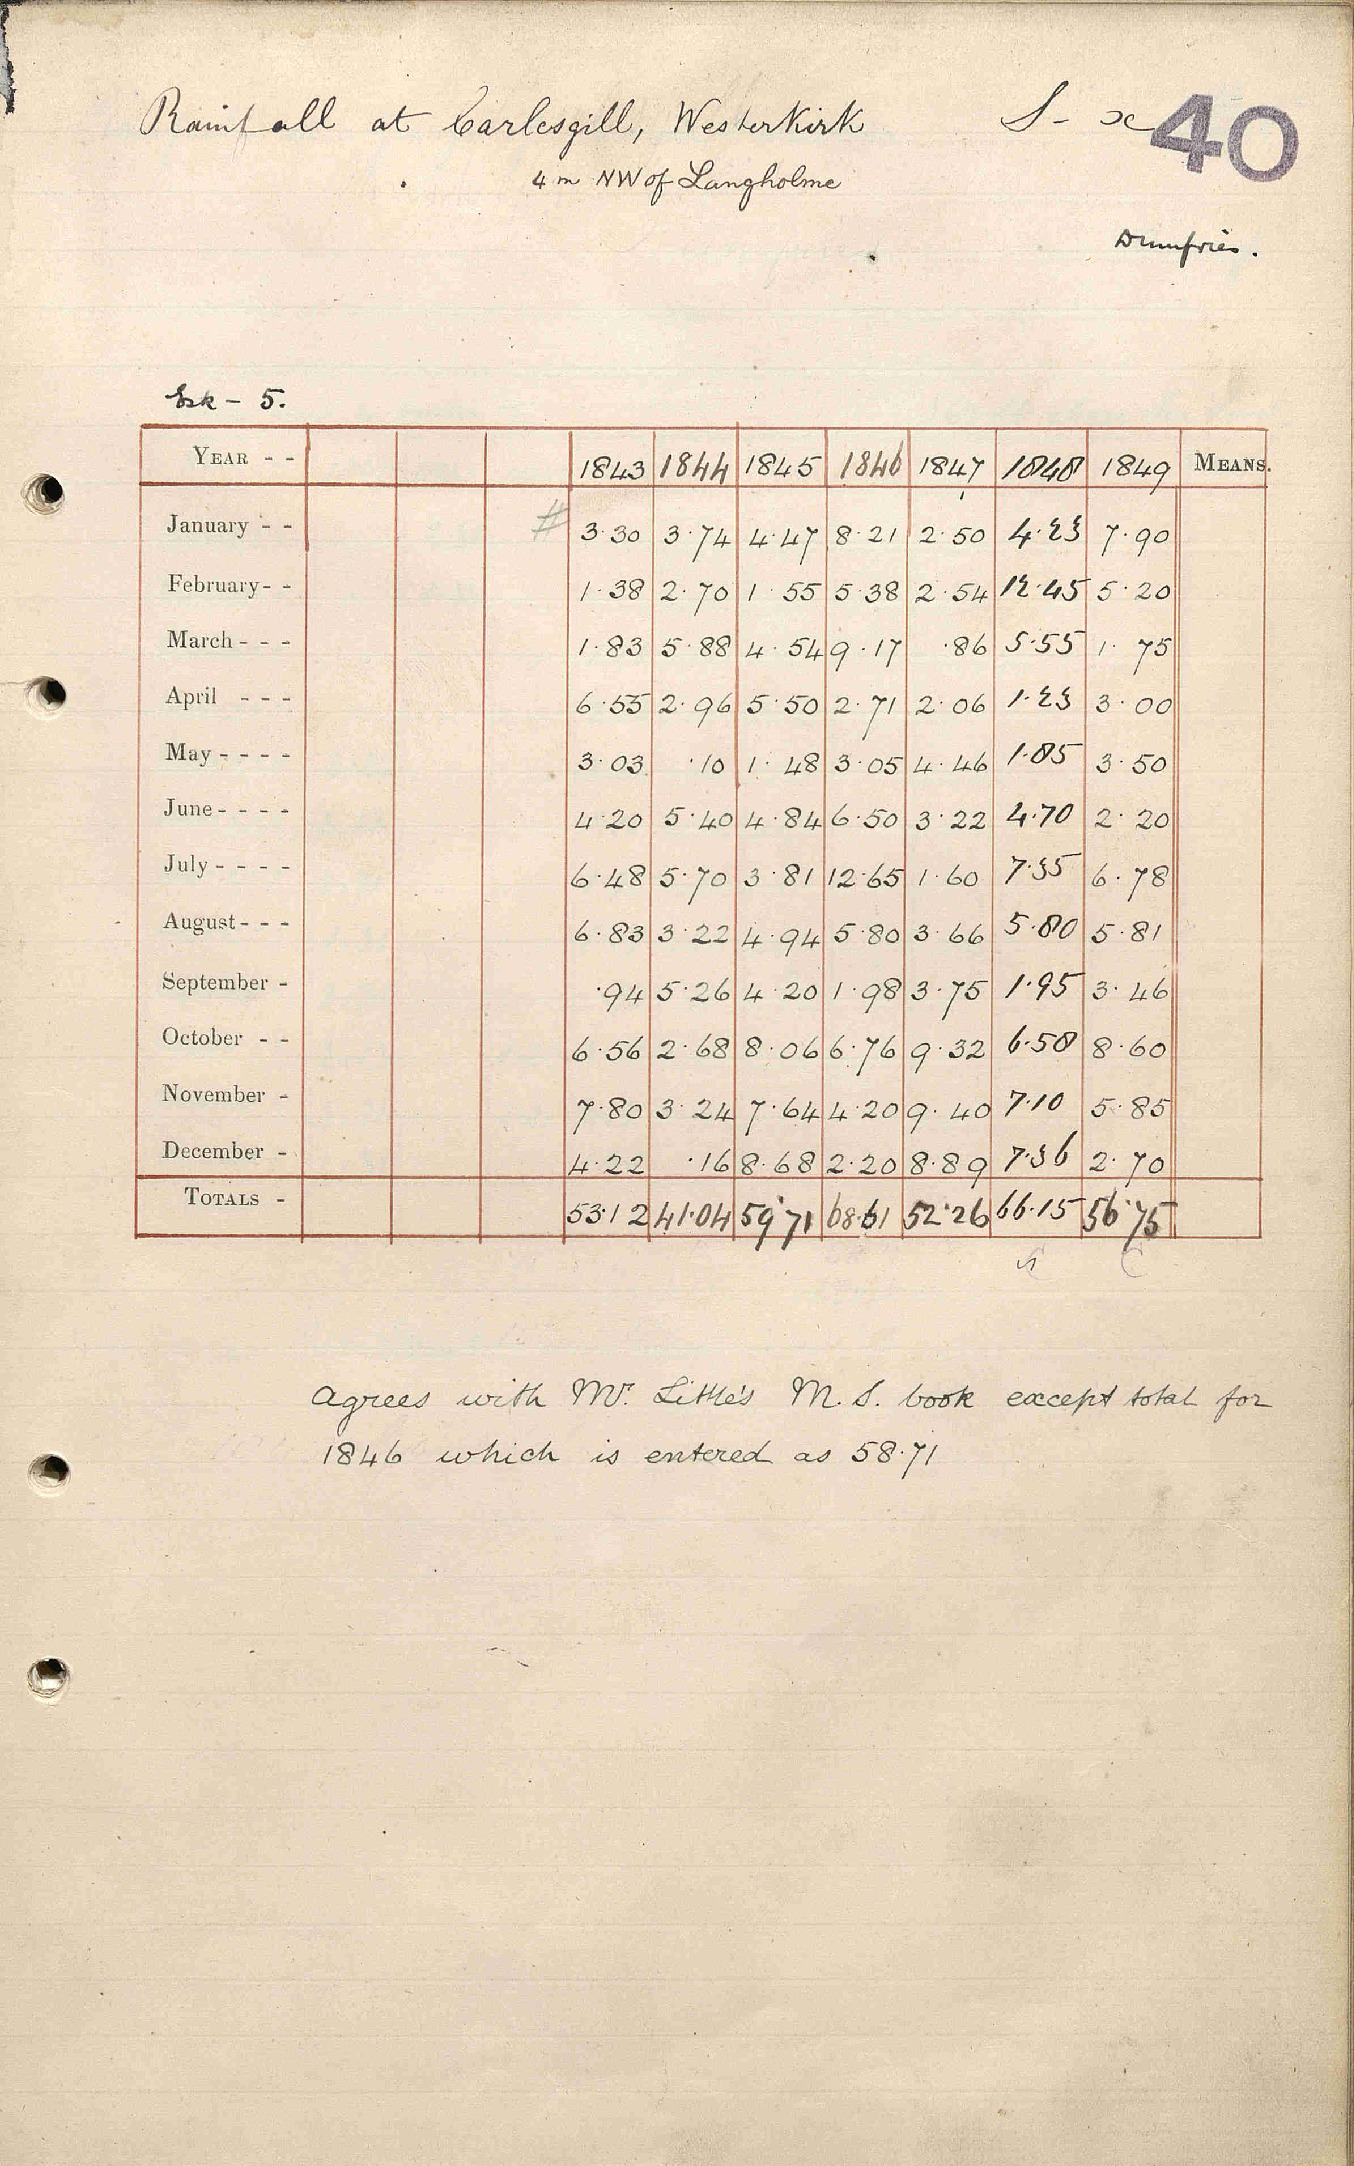 Rainfall at Carlesgill, Westerkirk S- x 40
4 m NW of Langholme
Dumfries.
Esk - 5.
YEAR - - 1843 1844 1845 1846 1847 1848 1849 MEANS.
January - - # 3.30 3.74 4.47 8.21 2.50 4.23 7.90
February - - 1.38 2.70 1.55 5.38 2.54 12.45 5.20
March - - - 1.83 5.88 4.54 9.17 .86 5.55 1.75
April - - - 6.55 2.96 5.50 2.71 2.06 1.23 3.00
May - - - - 3.03 .10 1.48 3.05 4.46 1.85 3.50
June - - - - 4.20 5.40 4.84 6.50 3.22 4.70 2.20
July - - - - 6.48 5.70 3.81 12.65 1.60 7.35 6.78
August - - - 6.83 3.22 4.94 5.80 3.66 5.80 5.81
September - .94 5.26 4.20 1.98 3.75 1.95 3.46
October - - 6.56 2.68 8.06 6.76 9.32 6.58 8.60
November - 7.80 3.24 7.64 4.20 9.40 7.10 5.85
December - 4.22 .16 8.68 2.20 8.89 7.36 2.70
TOTALS - 53.12 41.04 59.71 68.61 52.26 66.15 56.75
agrees with Mr. Little's M.S. book except total for
1846 which is entered as 58.71